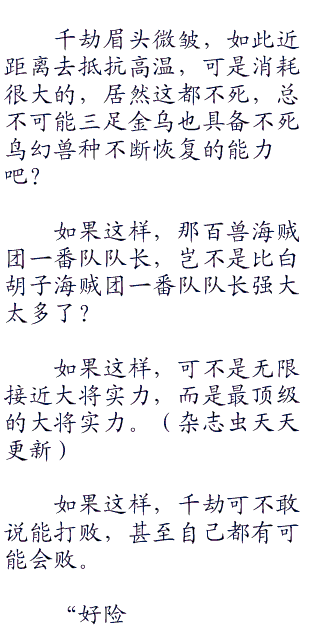 千劫眉头微皱，如此近
距离去抵抗高温，可是消耗
很大的，居然这都不死，总
不可能三足金乌也具备不死
鸟幻兽种不断恢复的能力
吧？
如果这样，那百兽海贼
团一番队队长，岂不是比白
胡子海贼团一番队队长强大
太多了？
如果这样，可不是无限
接近大将实力，而是最顶级
的大将实力。（杂志虫天天
更新）
如果这样，千劫可不敢
说能打败，甚至自己都有可
能会败。
“好险